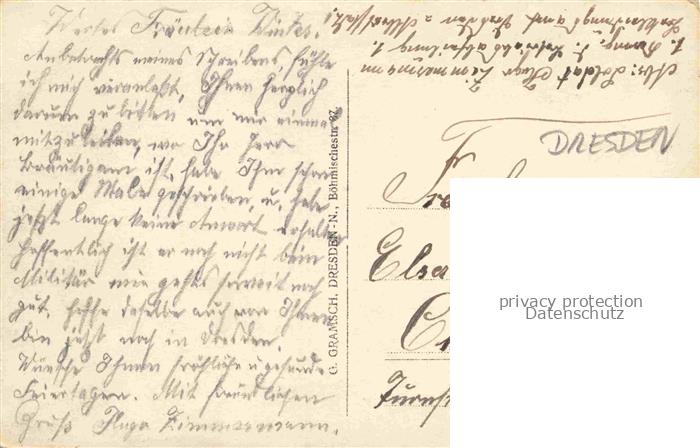 Wertes Fräulein Winter!
Anbetrachts meines Schreibens, fühle
ich mich veranlaßt, Ihnen herzlich
darum zu bitten um mir einmal
mitzuteilen, wo Ihr Herr
Bräutigam ist, habe Ihm schon
einige Male geschrieben, u. habe
jetzt lange keine Antwort erhalten
hoffentlich ist er noch nicht beim
Militär mir gehts soweit noch
gut, hoffe daselbe auch von Ihnen
bin jetzt noch in Dresden.
Wünsche Ihnen fröhliche u gesunde
Feiertagen. Mit freundlichen
Gruß Hugo Zimmermann.
G. GRAMSCH, DRESDEN-N., Böhmischestr. 27.
Abs: Soldat Hugo Zimmermann
DRESDEN
Elsa
privacy protection
Datenschutz